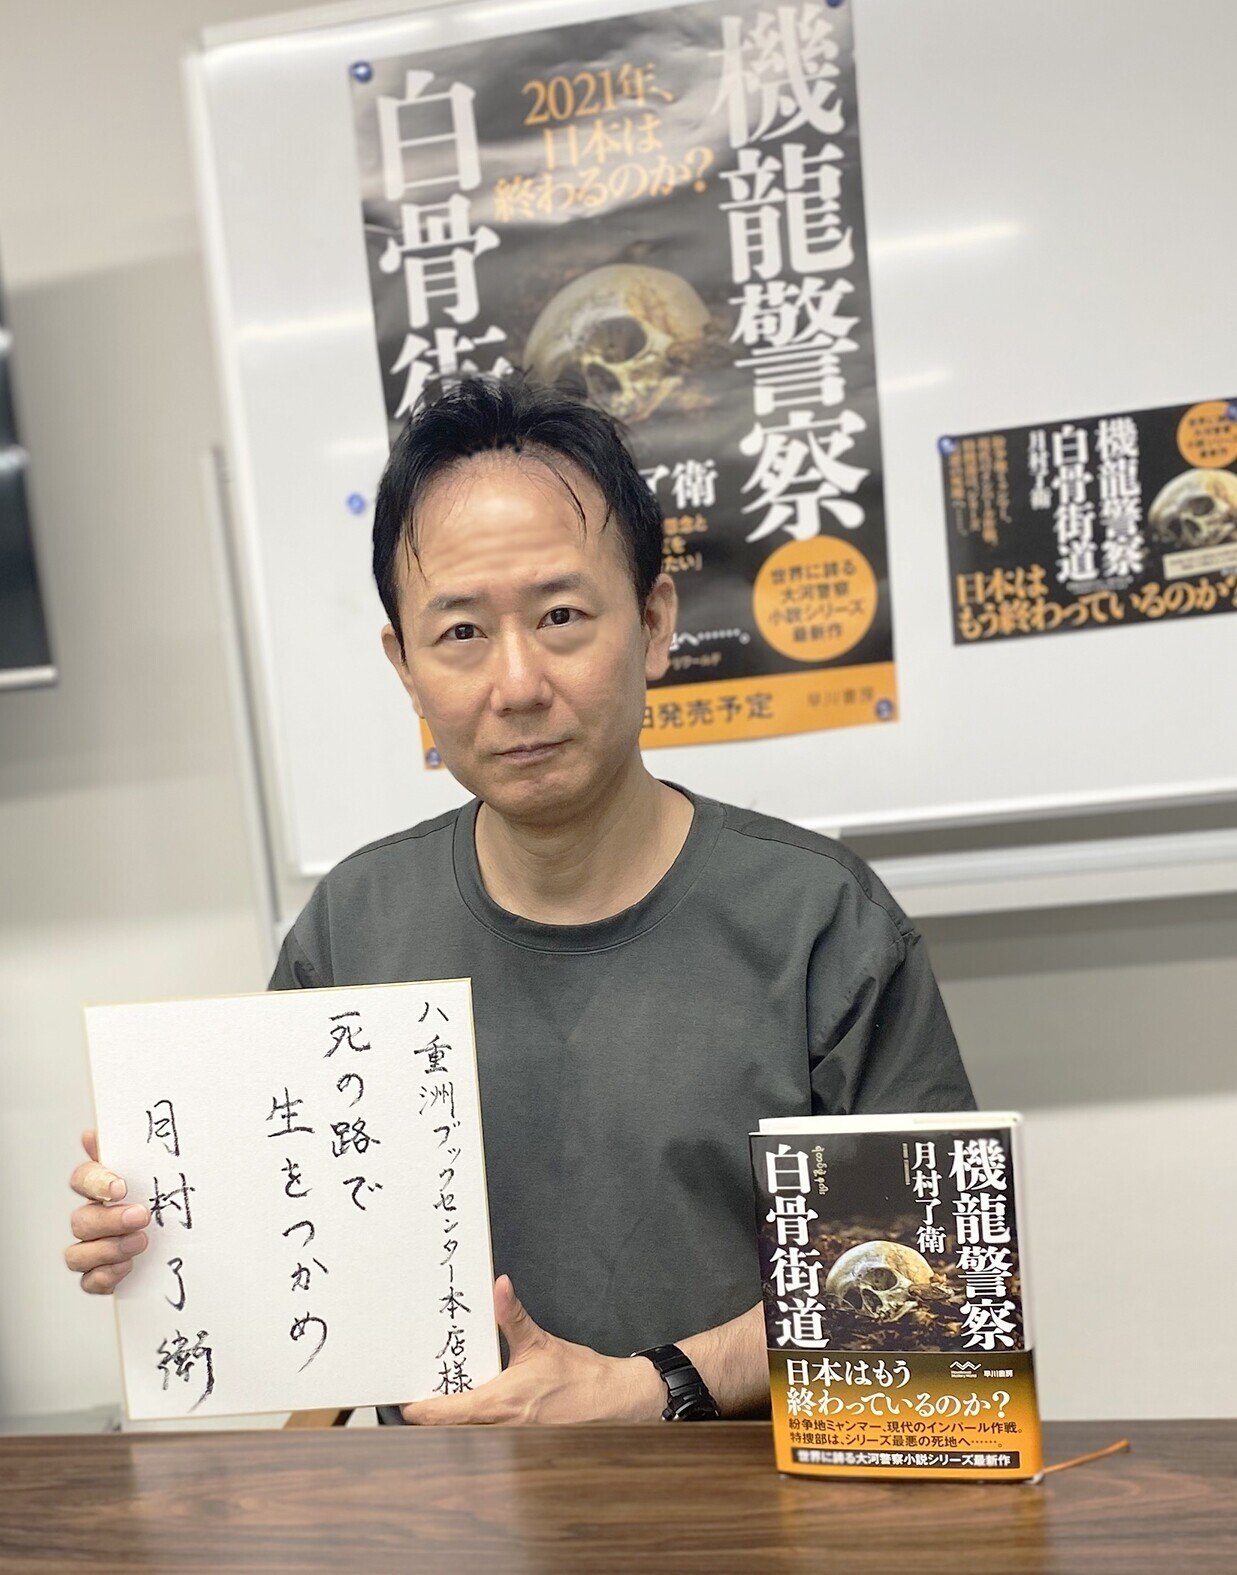 機龍警察
2021年、
日本は
終わるのか?
白骨街
了衛
念と
を
たい」
地へ……。
世界に誇る
大河警察
小説シリーズ
最新作
発売予定
早川書房
機龍警察
白骨街道
月村了衛
日本は
もう終わっているのか?
八重洲ブックセンター本店様
死の路で
生をつかめ
月村了衛
機龍警察
月村了衛
白骨街道
日本はもう
終わっているのか?
早川書房
紛争地ミャンマー、現代のインパール作戦。
特捜部は、シリーズ最悪の死地へ……。
世界に誇る大河警察小説シリーズ最新作